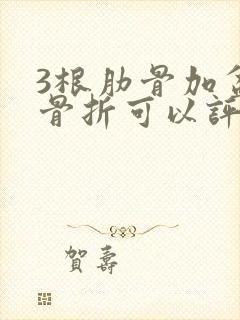 3根肋骨加盆
骨折可以評
賀壽